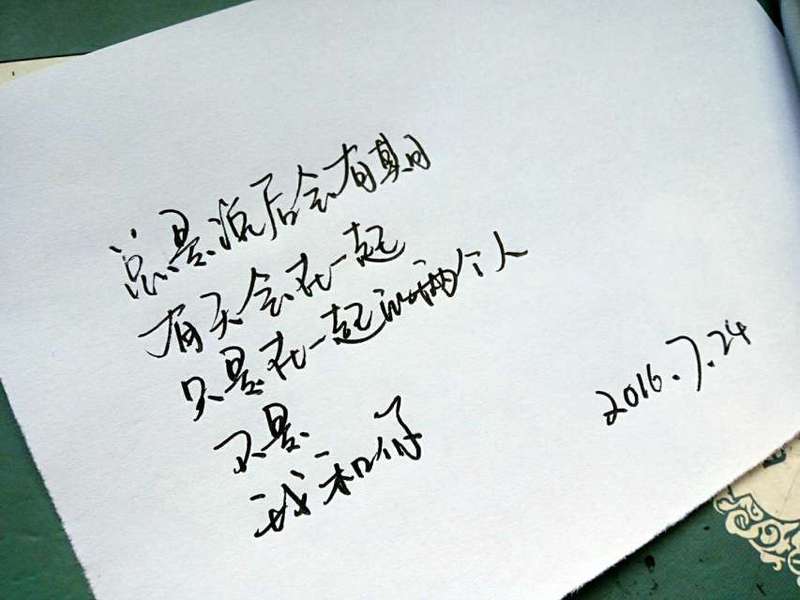 总是说后会有期
有天会在一起
只是在一起的两个人
不是
我和你
2016.7.24